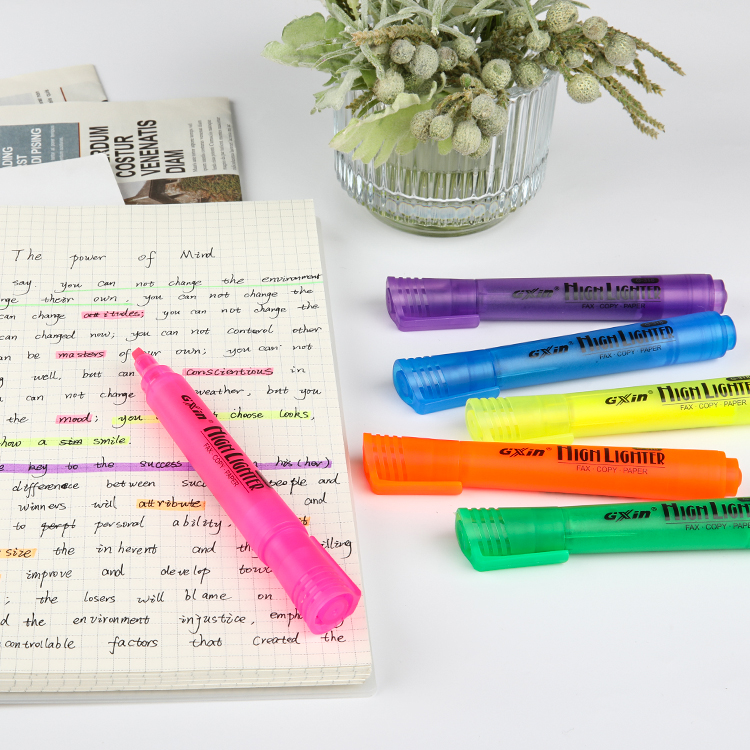 RDUM
COSTUR
VENENATIS
DIAM
DING
EST
DI PISING
The power of Mind
say you can not change the environment
their own, you can not change the
can change attitudes; you can not change the
can changed now; you can not control other
an be masters of your own; you can not
well, but can conscientious in
can not change weather, but you
the mood; you choose looks,
how a sim smile.
key to the success in his (her)
difference between people and
winners will attribute and
to perpl personal ability.
size the inherent and
improve and develop
; the losers will blame on
d the environment injustice,
controllable factors that created the
GXin® HIGH LIGHTER
FAX · COPY · PAPER
GXin® HIGH LIGHTER
FAX · COPY · PAPER
GXin® HIGH LIGHTER
FAX · COPY · PAPER
GXin® HIGH LIGHTER
FAX · COPY · PAPER
GXin® HIGH LIGHTER
FAX · COPY · PAPER
GXin® HIGH LIGHTER
FAX · COPY · PAPER